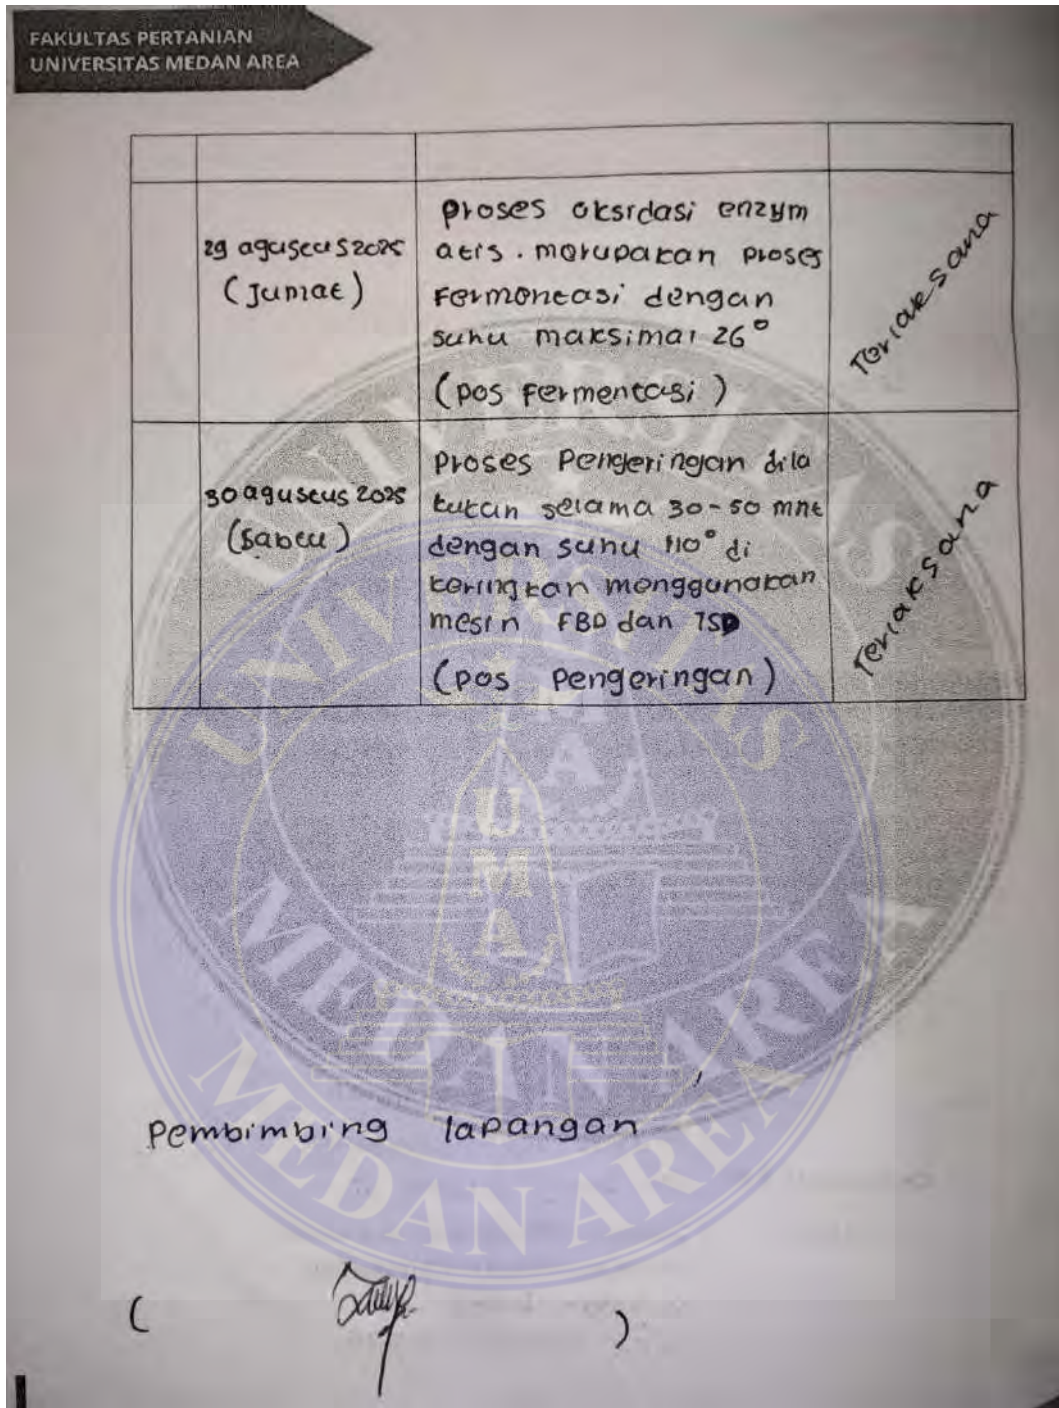 FAKULTAS PERTANIAN
UNIVERSITAS MEDAN AREA
29 agustus 2025
(Jumat)
proses oksidasi enzym
atis. merupakan proses
Fermentasi dengan
suhu maksimal 26°
(pos Fermentasi)
Terlaksana
30 agustus 2025
(Sabtu)
proses Pengeringan dila
kukan selama 30-50 mnt
dengan suhu 110° di
keringkan menggunakan
mesin FBD dan TSD
(pos Pengeringan)
Terlaksana
UNIVERSITAS
MEDAN AREA
UMA
UNIVERSITAS
MEDAN AREA
UMA
Pembimbing lapangan
( )